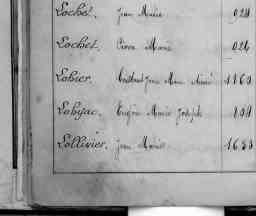 Lochet. Jean Marie 924
Lochet. Pierre Marie 926
Lohier. Jean Marie Aimé 1160
Lohyac. Eugène Marie Joseph 804
Lollivier. Jean Marie 1630